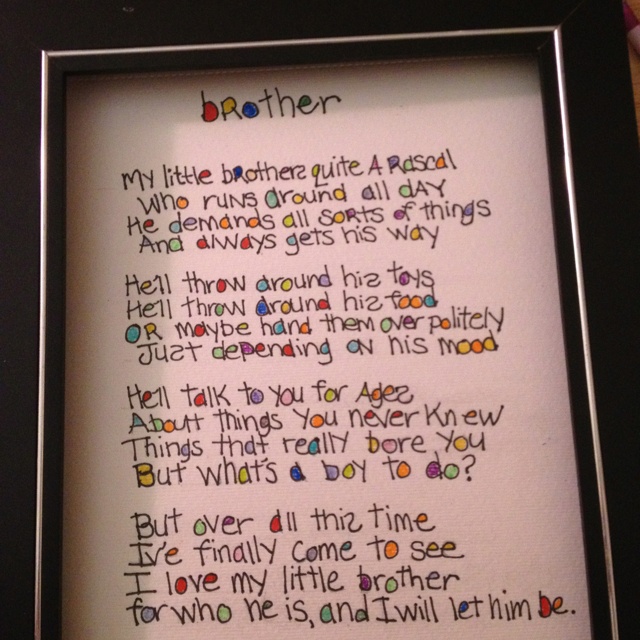 brother
My little brothers quite A Rascal
Who runs around all dAY
He demands all sorts of things
And always gets his way
He'll throw around his toys
He'll throw around his food
OR maybe hand them over politely
Just depending on his mood
He'll talk to you for Ages
About things you never Knew
Things that really bore you
But what's a boy to do?
But over all this time
I've finally come to see
I love my little brother
for who he is, and I will let him be.